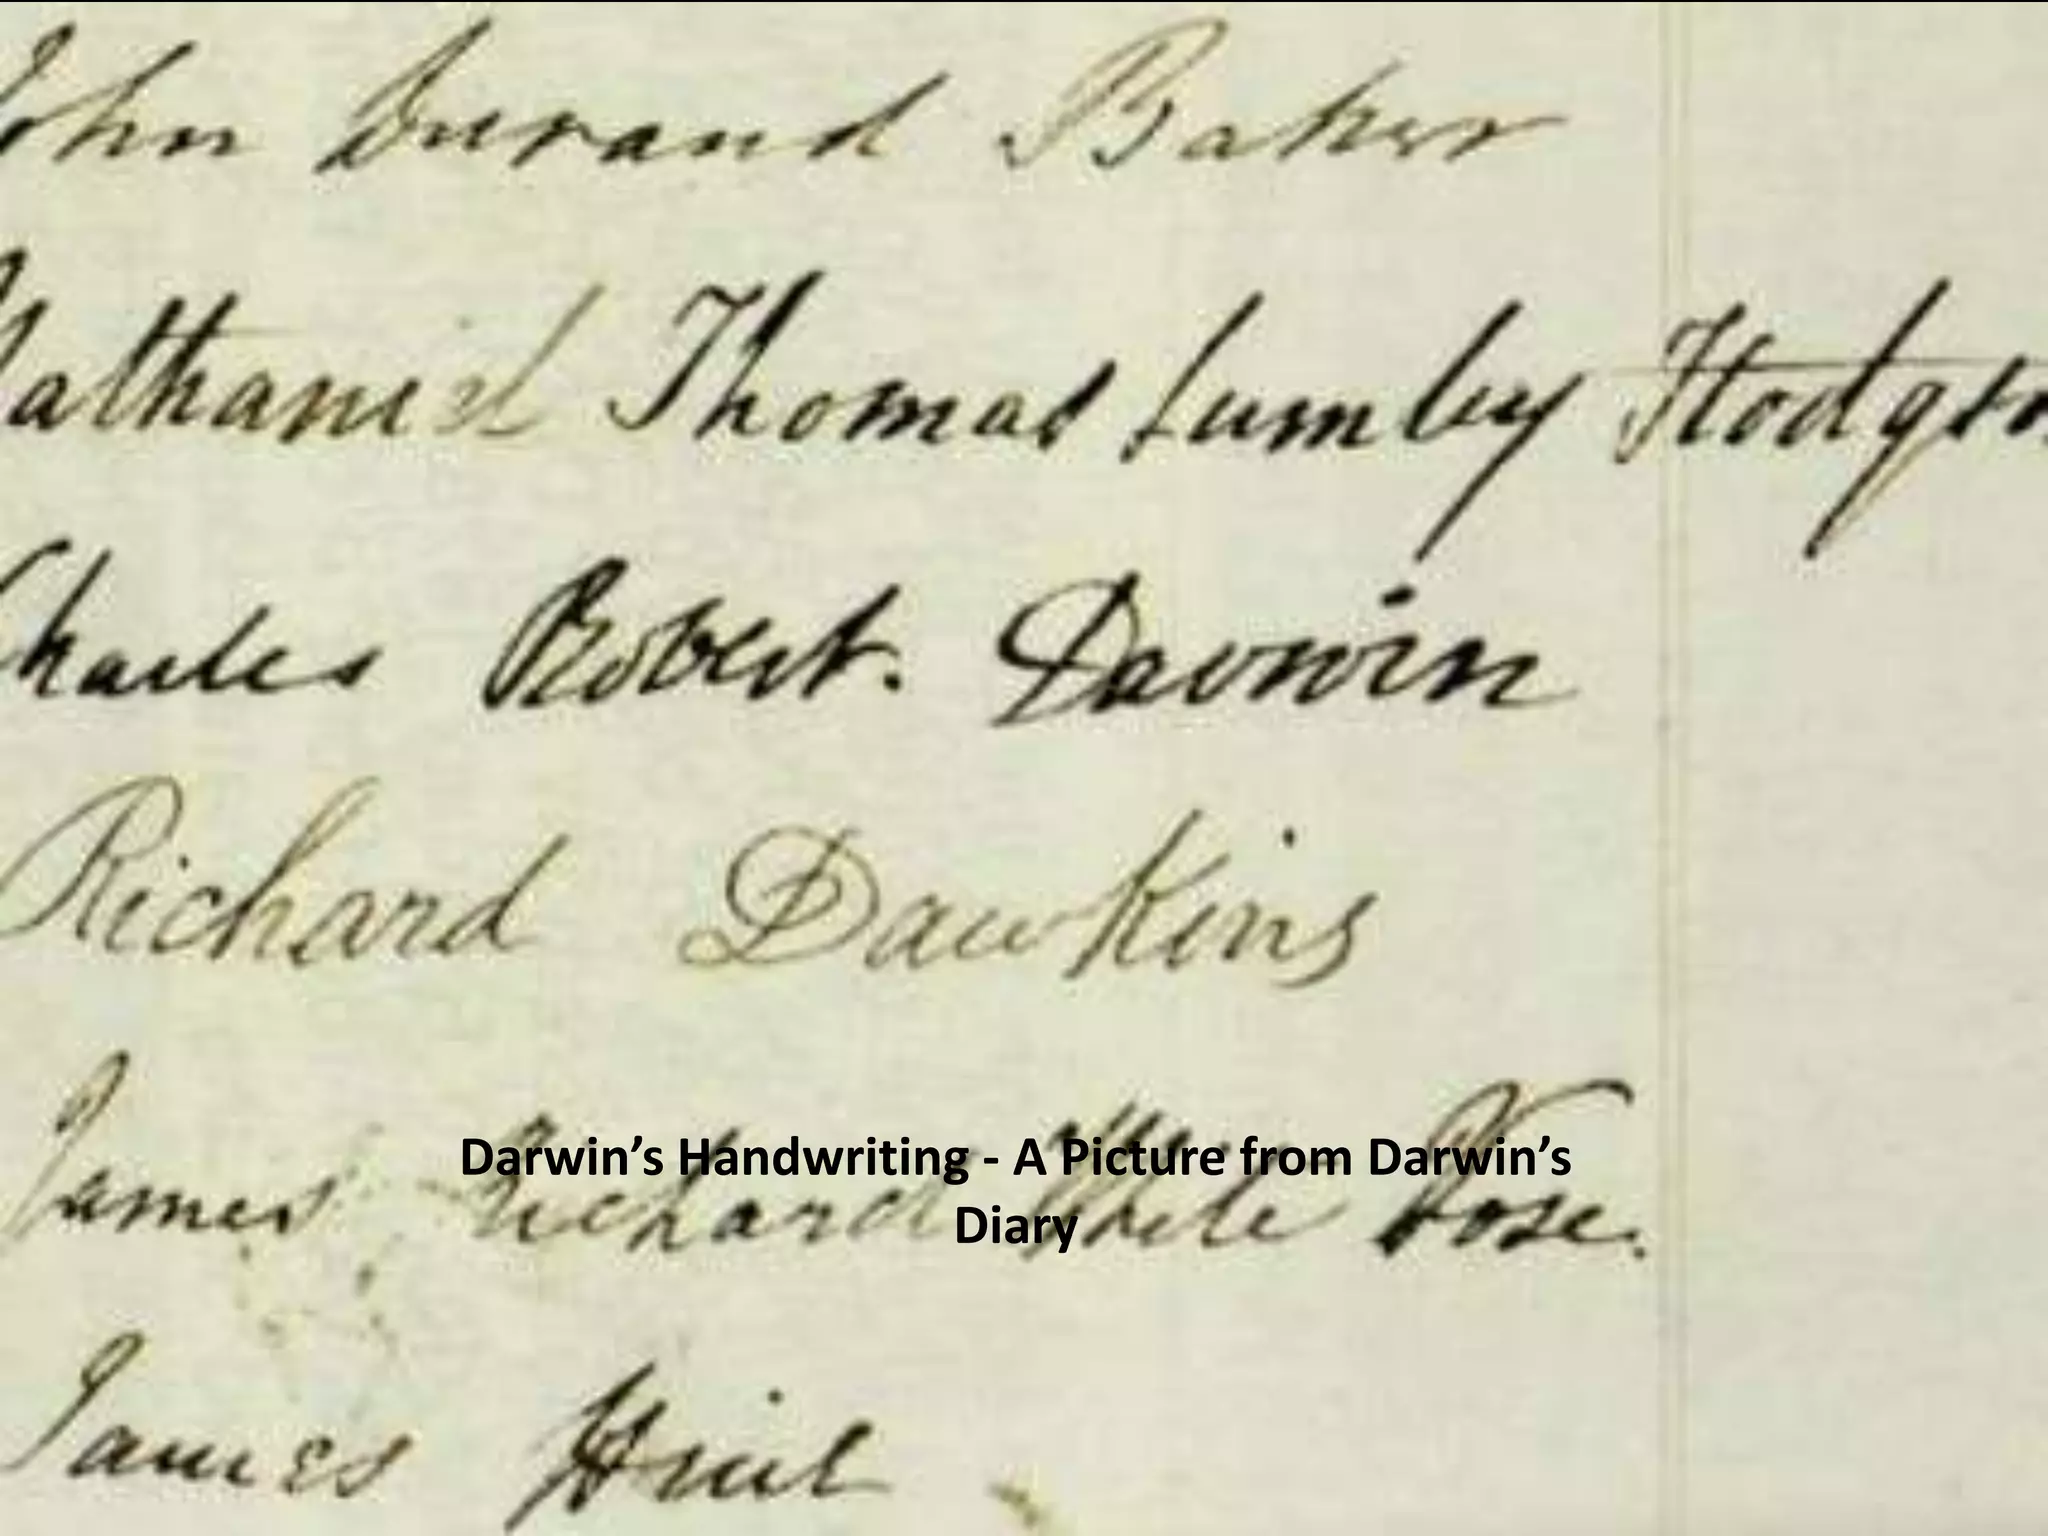 John Durand Baker
Nathaniel Thomas Lumby Hodgson
Charles Robert. Darwin
Richard Dawkins
James Richard White Vose.
Darwin’s Handwriting - A Picture from Darwin’s
Diary
James